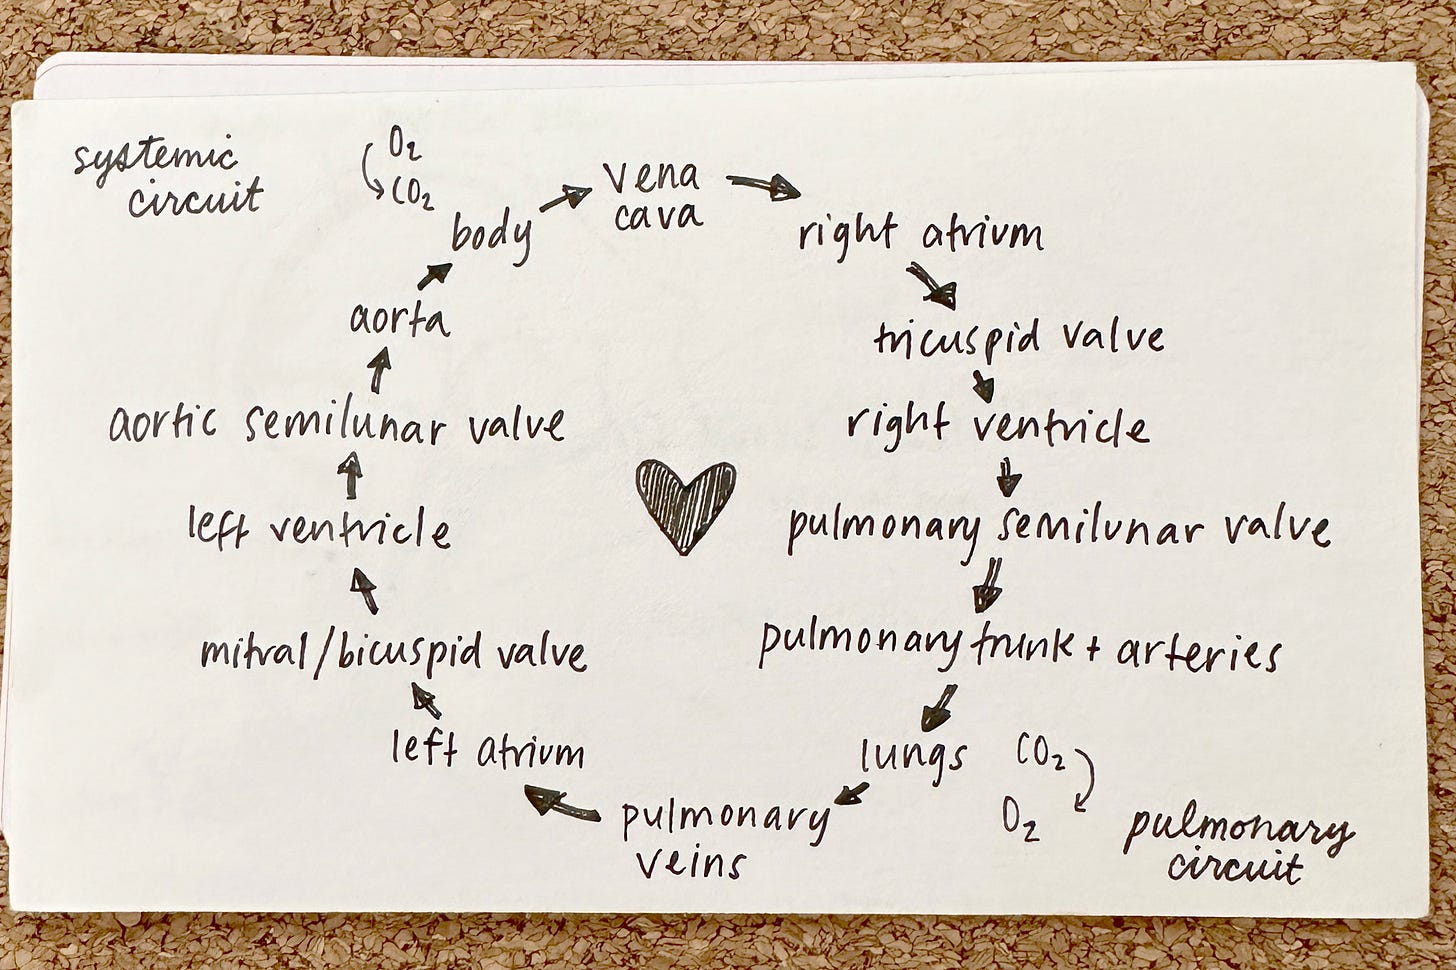 systemic
circuit
O₂
CO₂
body
vena
cava
right atrium
tricuspid valve
right ventricle
pulmonary semilunar valve
pulmonary trunk + arteries
lungs
CO₂
O₂
pulmonary
circuit
pulmonary
veins
left atrium
mitral/bicuspid valve
left ventricle
aortic semilunar valve
aorta